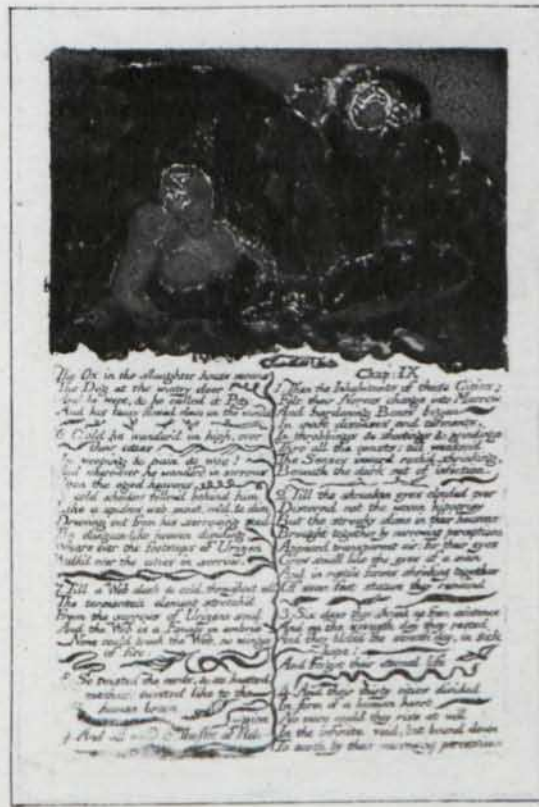 The Ox in the slaughter house moans
The Dog at the wintry door
And he wept, & he called it Pity
And his tears flowed down on the winds
6 Cold he wander'd on high, over
their cities
In weeping & pain & woe!
And where-ever he wanderd in sorrows
Upon the aged heavens
A cold shadow follow'd behind him
Like a spiders web, moist, cold, & dim
Drawing out from his sorrowing soul
The dungeon-like heaven dividing
Where ever the footsteps of Urizen
Walk'd over the cities in sorrow.
7 Till a Web dark & cold, throughout all
The tormented element stretch'd
From the sorrows of Urizens soul
And the Web is a Female in embrio
None could break the Web, no wings
of fire.
So twisted the cords, & so knotted
The meshes: twisted like to the
human brain
And all calld it The Net of
Chap: IX
1 Then the Inhabitants of those Cities:
Felt their Nerves change into Marrow
And hardening Bones began
In swift diseases and torments,
In throbbings & shootings & grindings
Thro' all the coasts; till weaken'd
The Senses inward rush'd shrinking,
Beneath the dark net of infection.
2 Till the shrunken eyes clouded over
Discernd not the woven hipocrisy
But the streaky slime in their heavens
Brought together by narrowing perceptions
Appeard transparent air; for their eyes
Grew small like the eyes of a man
And in reptile forms shrinking together
Of seven feet stature they remaind
3 Six days they shrunk up from existence
And on the seventh day they rested
And they bless'd the seventh day, in sick
hope:
And forgot their eternal life
4 And their thirty cities divided
In form of a human heart
No more could they rise at will
In the infinite void, but bound down
To earth by their narrowing perceptions